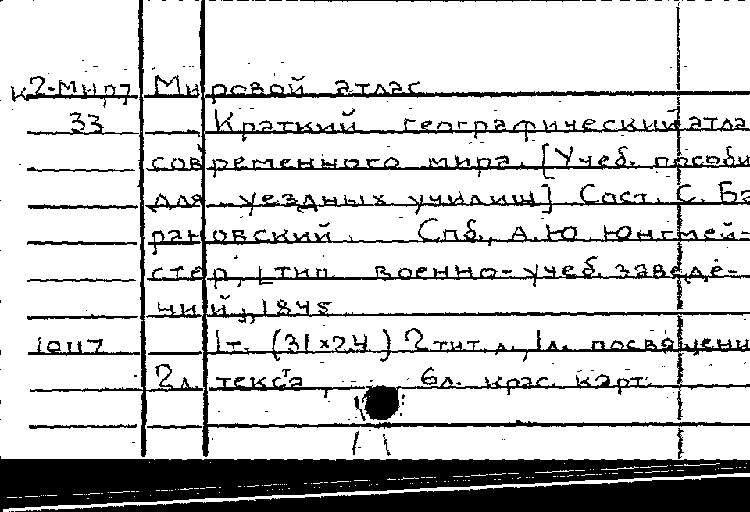 к2-Мир7 Мировой атлас
33 Краткий географический атла
современного мира. [Учеб. пособи
для уездных училищ] Сост. С. Ба
рановский. Спб., А.Ю. Юнгмей-
стер, [тип. военно-учеб. заведе-
ний], 1845
10117 1т. (31×24) 2 тит. л., 1л. посвящени
2л. текста, 6л. крас. карт.